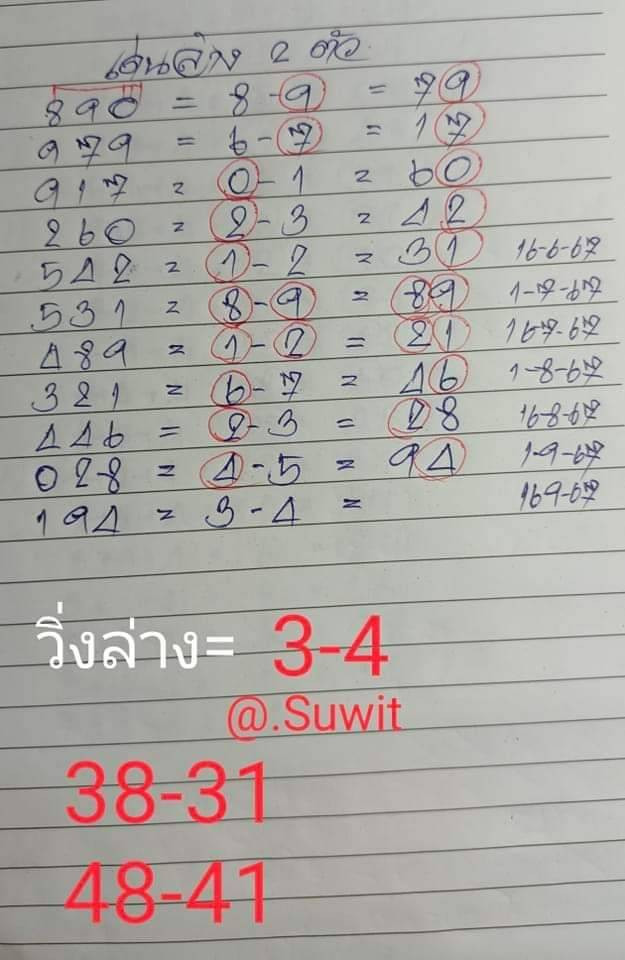 เด่นล่าง 2 ตัว
890 = 8-9 = 79
979 = 6-7 = 17
917 = 0-1 = 60
260 = 2-3 = 42
542 = 1-2 = 31 16-6-67
531 = 8-9 = 89 1-7-67
489 = 1-2 = 21 16-7-67
321 = 6-7 = 46 1-8-67
446 = 2-3 = 28 16-8-67
028 = 4-5 = 94 1-9-67
194 = 3-4 = 16 9-67
วิ่งล่าง= 3-4
@.Suwit
38-31
48-41